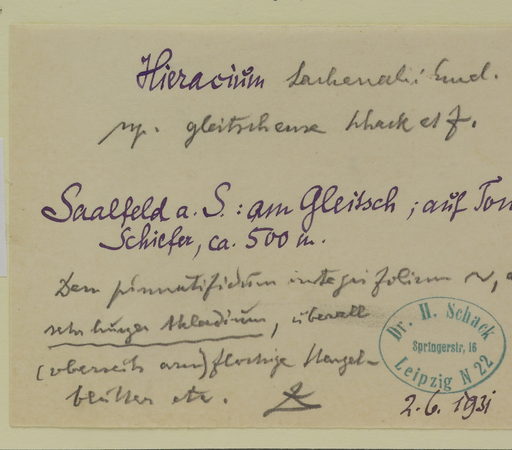 Hieracium Lachenalii Gmel.
ssp. gleitschense Schack et Z.
Saalfeld a. S.: am Gleitsch; auf Ton
Schiefer, ca. 500 m.
Dem pinnatifidum integrifolium ~,
sehr langes Akladium, überall
(oberseits arm)flockige Stengel-
blätter etc. Z
Dr. H. Schack
Springerstr. 16
Leipzig N 22
2.6.1931